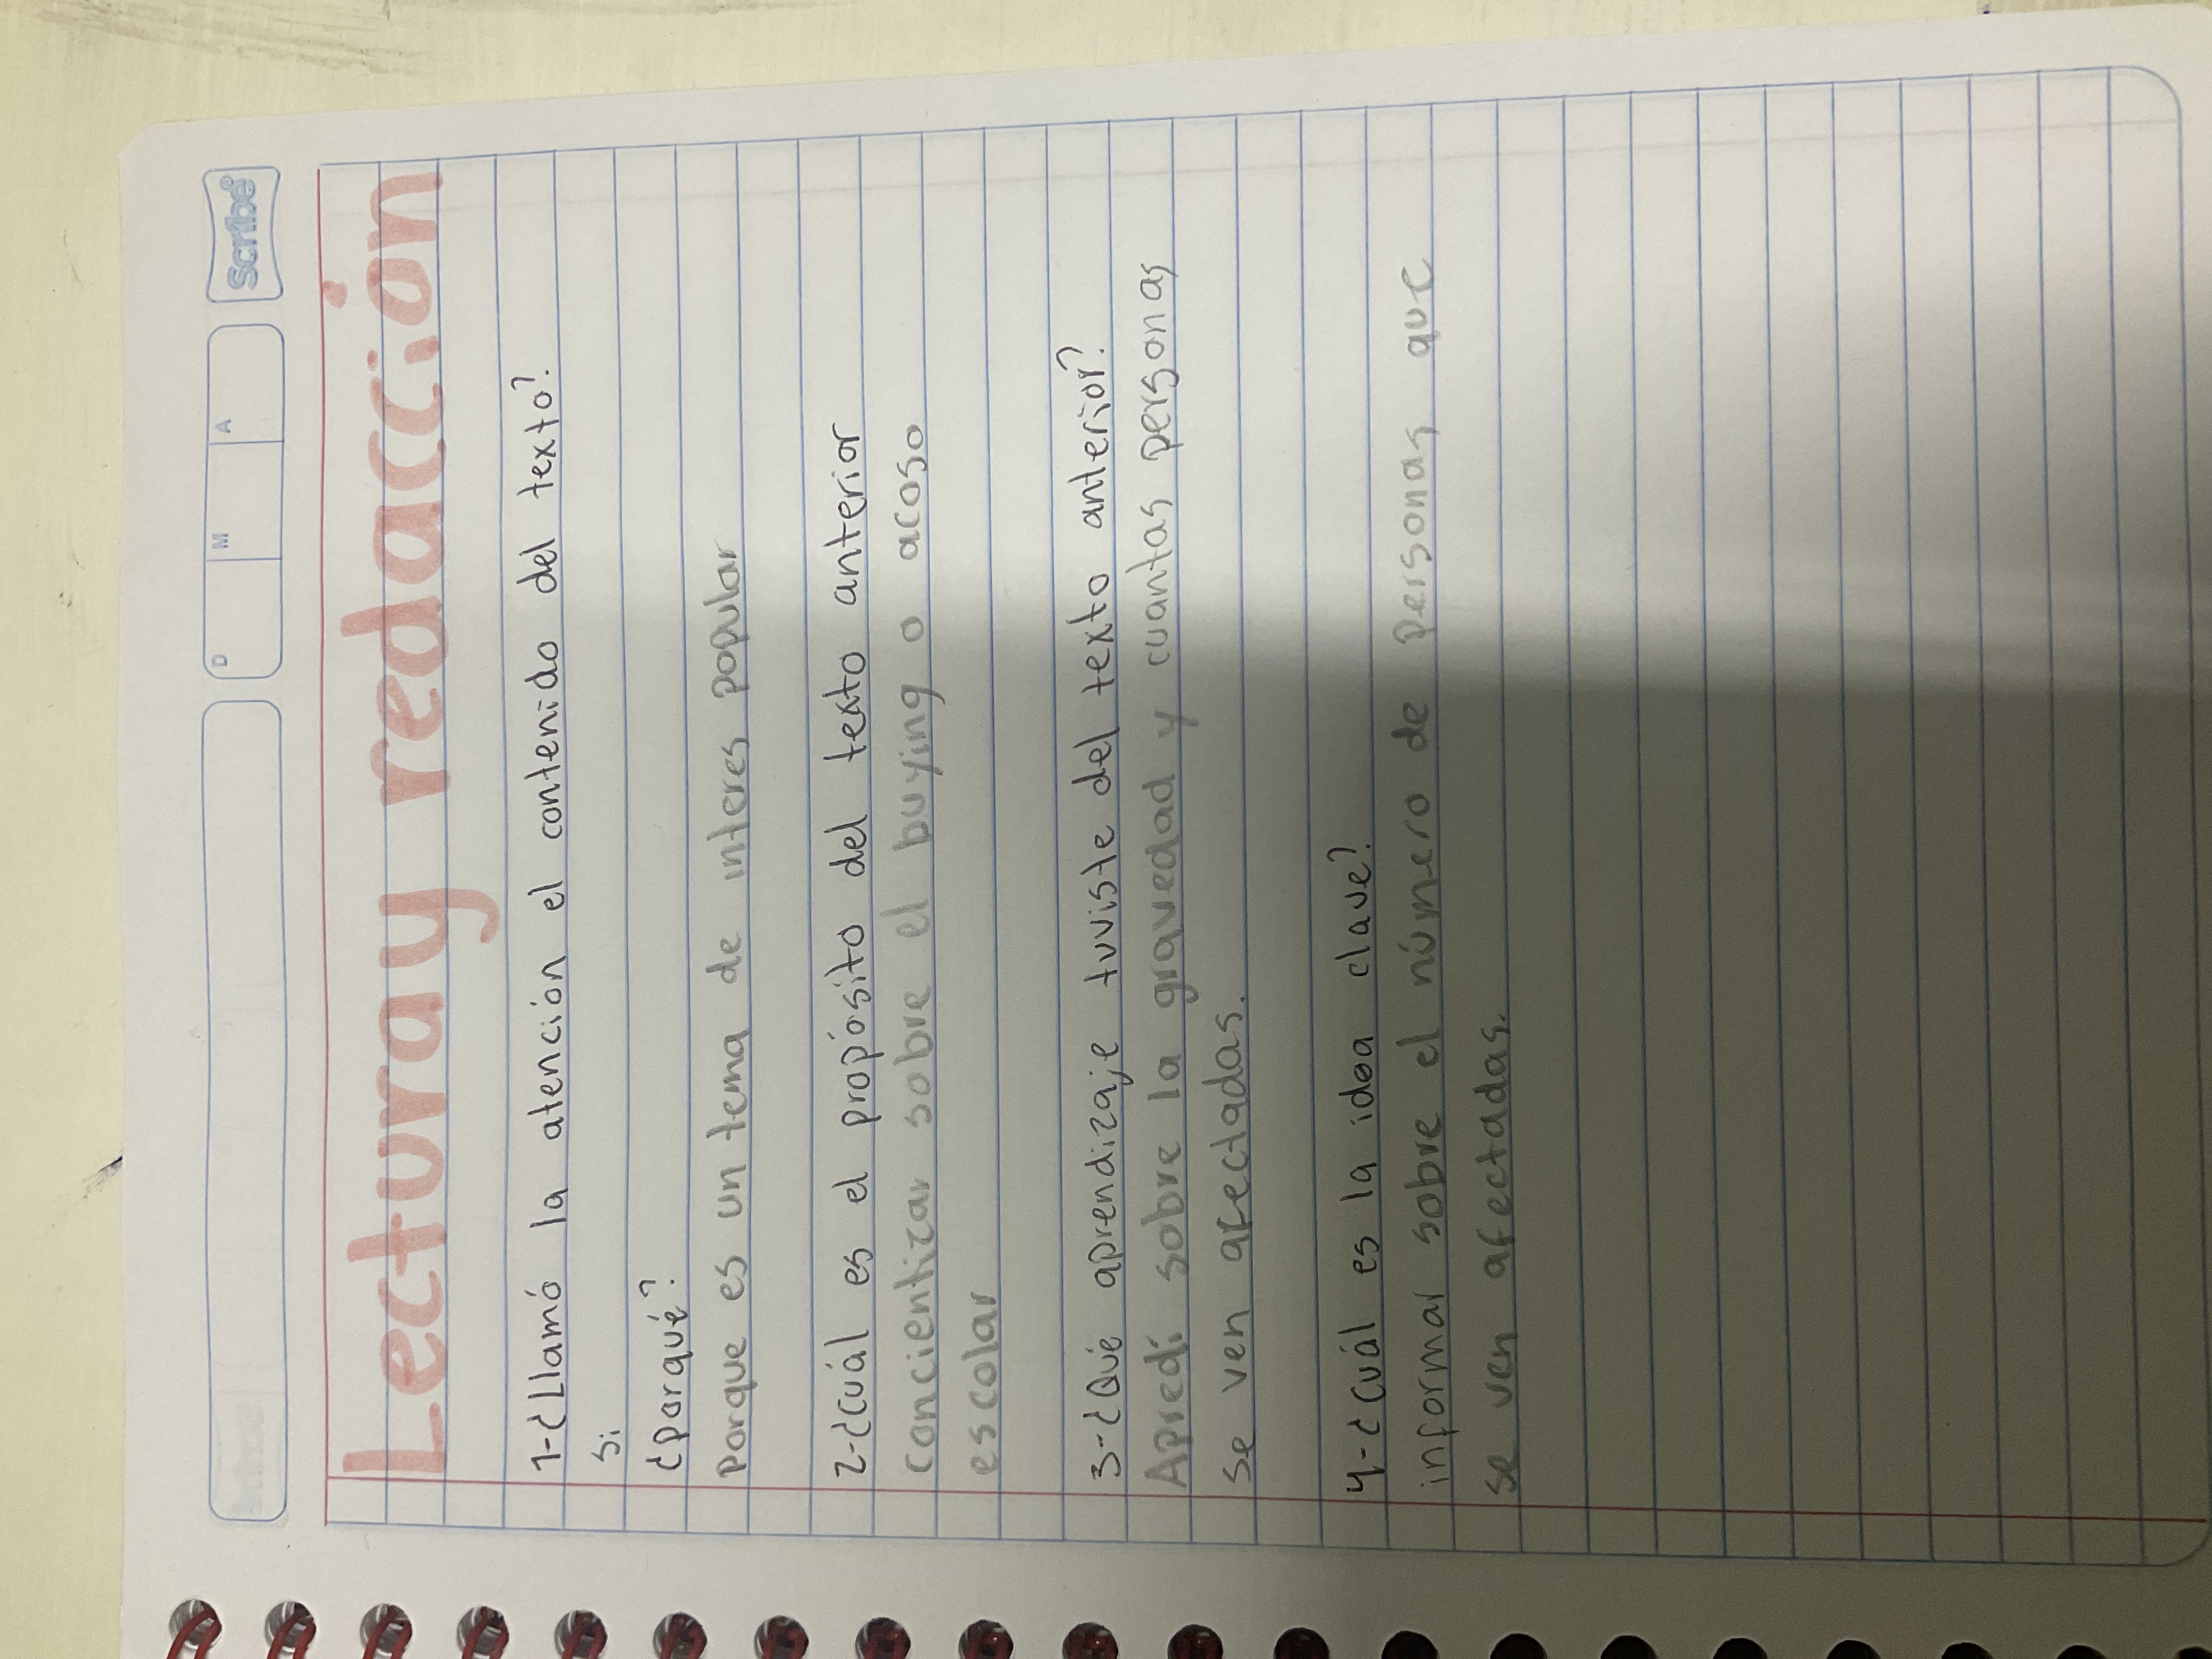 D M A
Scribe®
Lectura y redacción
1-¿Llamó la atención el contenido del texto?
Si
¿Porqué?
Porque es un tema de interes popular
2-¿Cuál es el propósito del texto anterior
Concientizar sobre el buying o acoso
escolar
3-¿Qué aprendizaje tuviste del texto anterior?
Apredí sobre la gravedad y cuantas personas
se ven afectadas.
4-¿Cuál es la idea clave?
informar sobre el número de personas que
se ven afectadas.